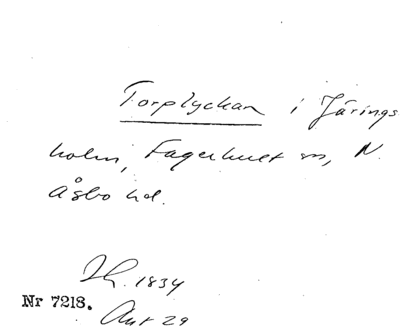 Torplyckan i Järings
holm, Fagerhult sn, N.
Åsbo hd.
Lh. 1834
Nr 7218.
Akt 29